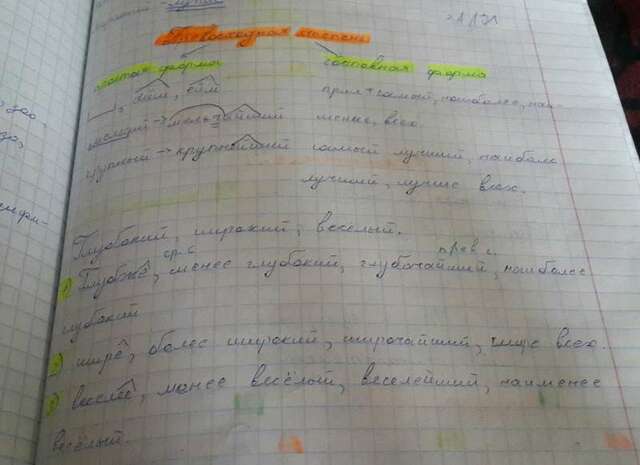 Превосходная степень
простая форма составная форма
айш, ейш прил + самый, наиболее, наи-
мелкий → мельчайший менее, всех.
крупный → крупнейший самый лучший, наиболее
лучший, лучше всех.
Глубокий, широкий, веселый.
ср.с прев с.
1) Глубже, менее глубокий, глубочайший, наиболее
глубокий
2) шире, более широкий, широчайший, шире всех.
3) веселее, менее весёлый, веселейший, наименее
весёлый.